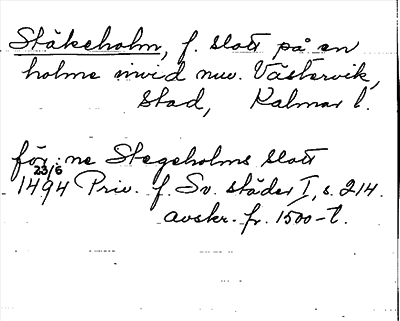 Stäkeholm, f. slott på en
holme invid nuv. Västervik,
stad, Kalmar l.
för: ne Stegeholms slott
23/6
1494 Priv. f. Sv. städer I, s. 214.
avskr. fr. 1500-t.